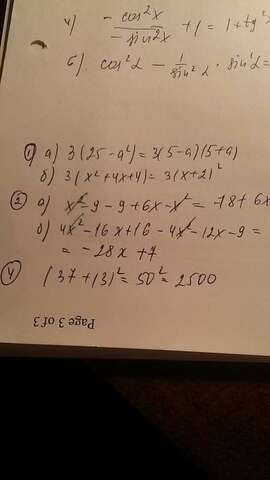 4) -cos²x / -sin²x + 1 = 1 + tg²
б) cos²α - 1/sin²α · sin²α =
① а) 3(25 - a²) = 3(5-a)(5+a)
б) 3(x² + 4x + 4) = 3(x+2)²
② а) x² - 9 - 9 + 6x - x² = -18 + 6x
б) 4x² - 16x + 16 - 4x² - 12x - 9 =
= -28x + 7
④ (37 + 13)² = 50² = 2500
Page 3 of 3